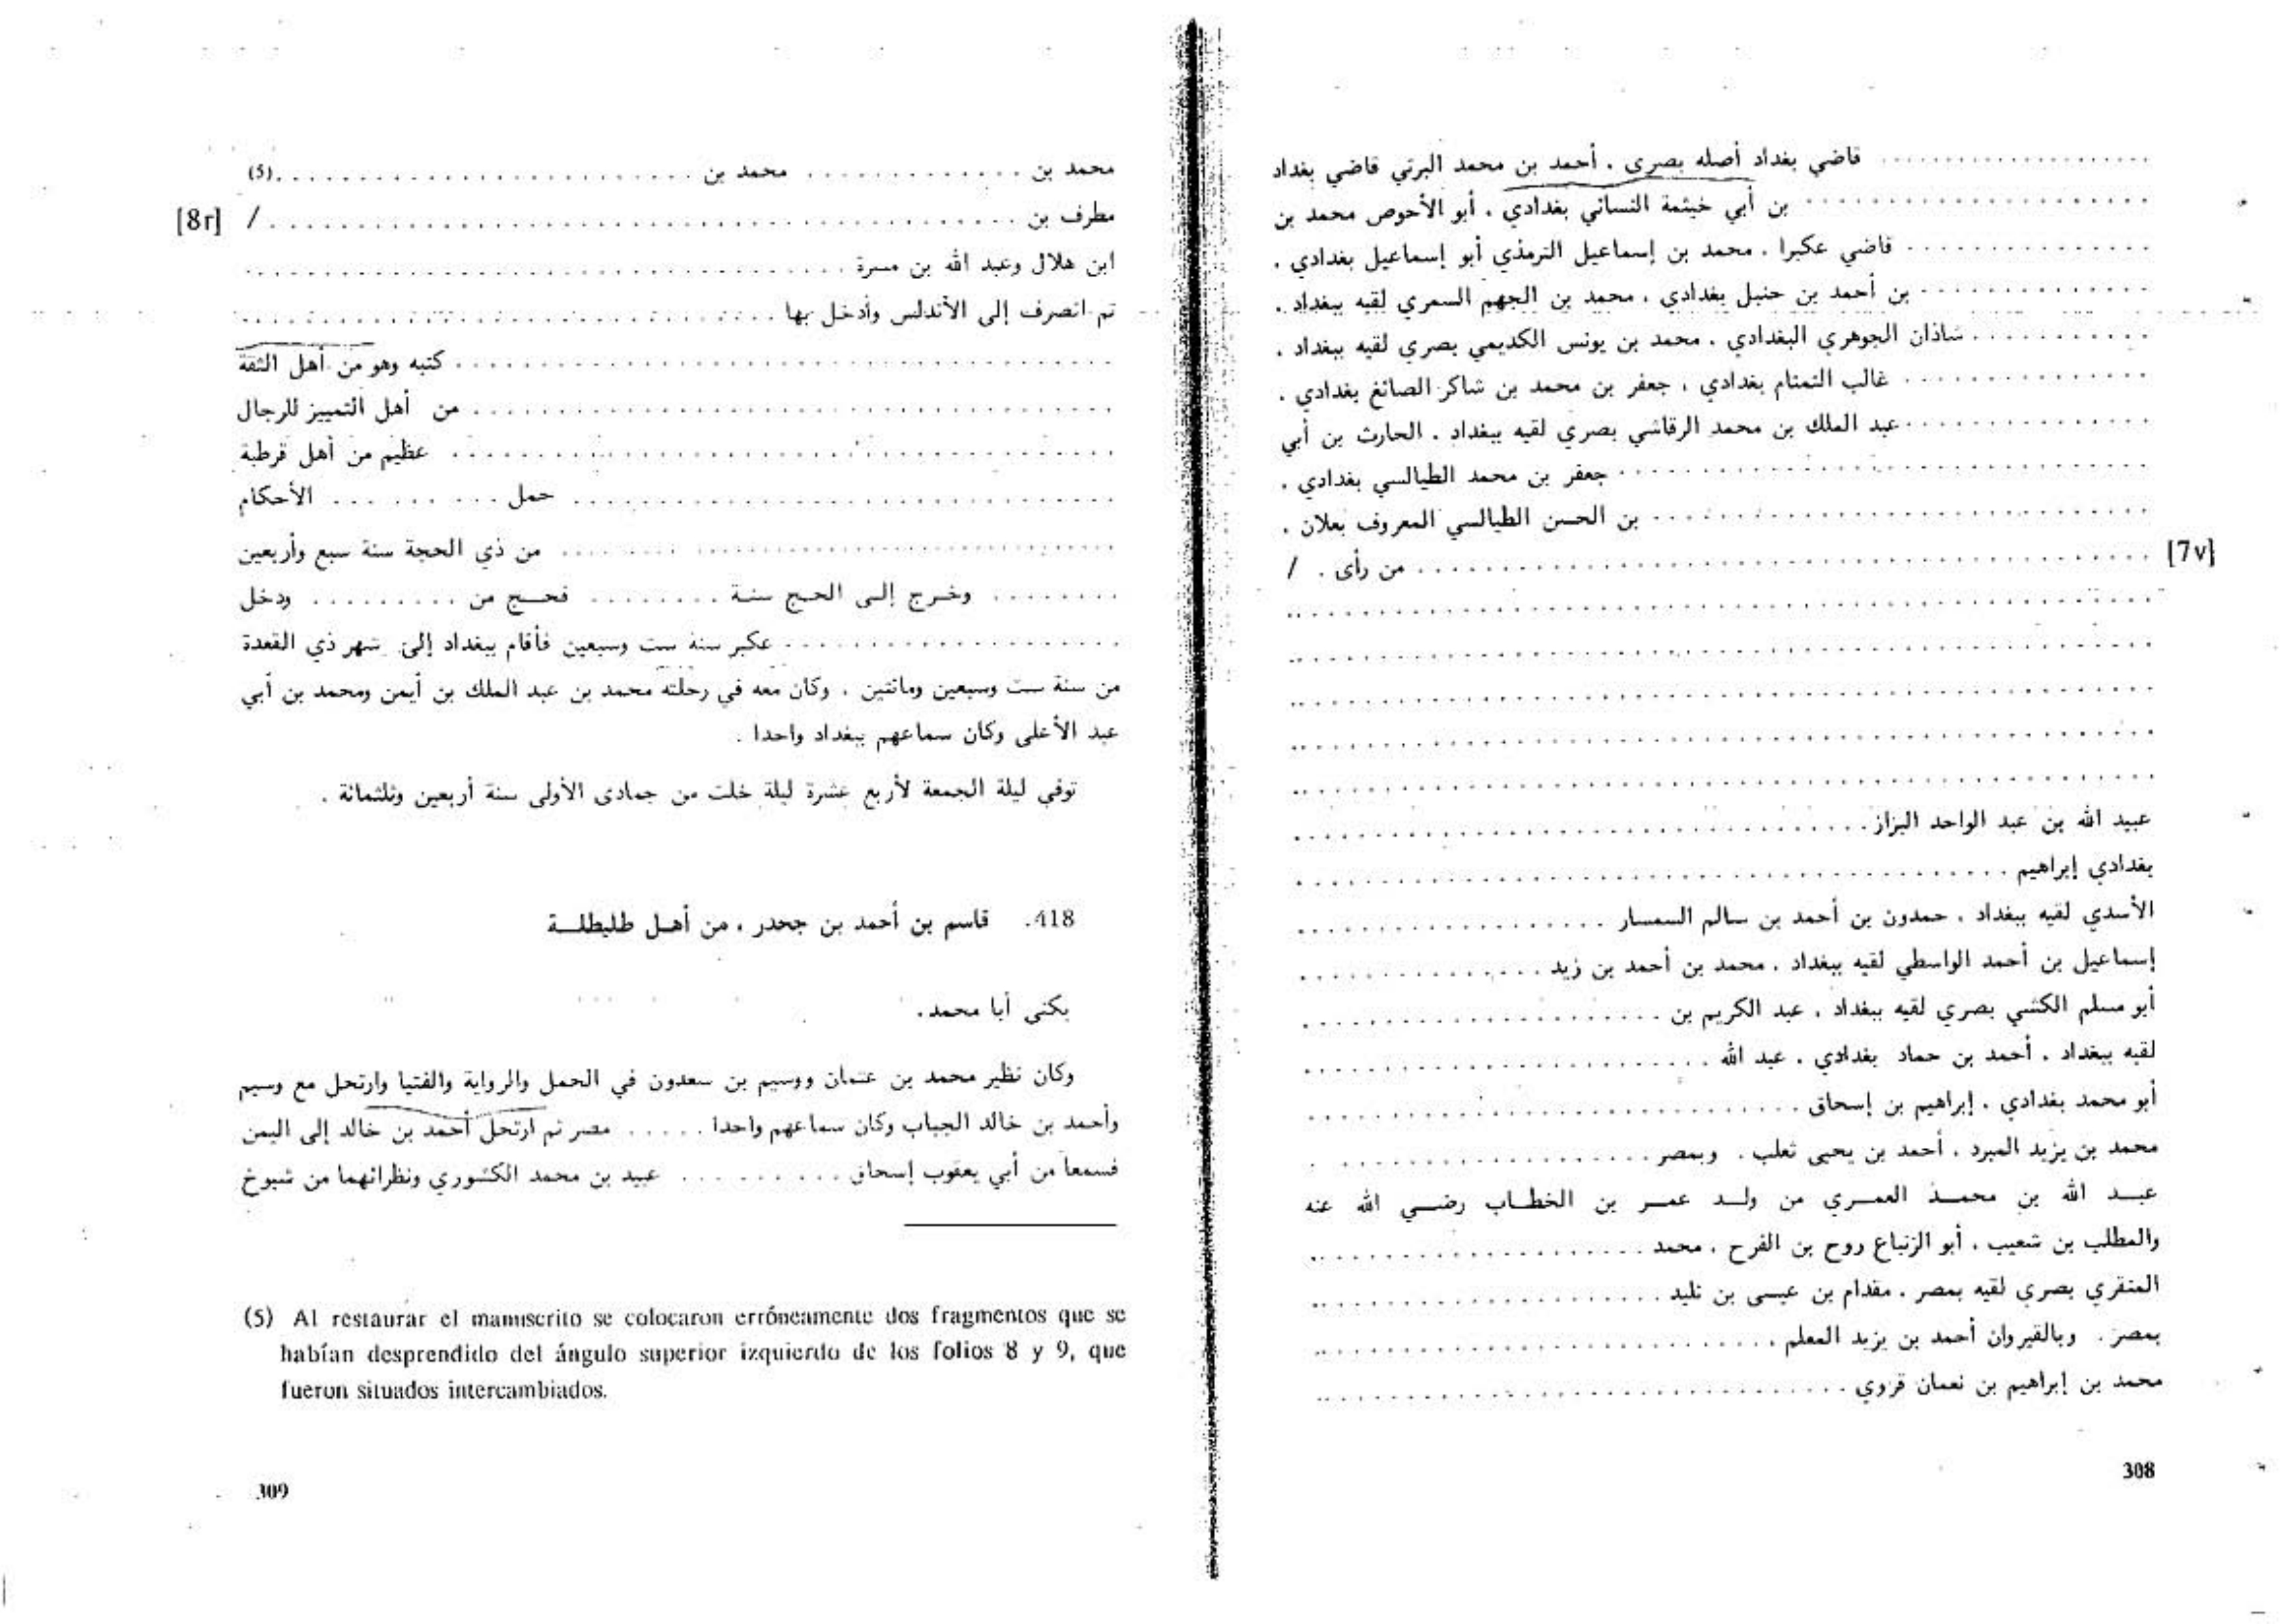 ................... قاضي بغداد أصله بصري . أحمد بن محمد البرتي قاضي بغداد
................... بن أبي خيثمة النسائي بغدادي . أبو الأحوص محمد بن
............... قاضي عكبرا . محمد بن إسماعيل الترمذي أبو إسماعيل بغدادي .
.............. بن أحمد بن حنبل بغدادي . محمد بن الجهم السمري لقيه ببغداد .
............ شاذان الجوهري البغدادي . محمد بن يونس الكديمي بصري لقيه ببغداد .
............... غالب التمتام بغدادي . جعفر بن محمد بن شاكر الصائغ بغدادي .
............... عبد الملك بن محمد الرقاشي بصري لقيه ببغداد . الحارث بن أبي
.............................. جعفر بن محمد الطيالسي بغدادي .
............................ بن الحسن الطيالسي المعروف بعلان .
[7v] .......................................... من رأى . /
..................................................
..................................................
..................................................
..................................................
..................................................
عبيد الله بن عبد الواحد البزاز ..................................
بغدادي إبراهيم ..........................................
الأسدي لقيه ببغداد . حمدون بن أحمد بن سالم السمسار ..................
إسماعيل بن أحمد الواسطي لقيه ببغداد . محمد بن أحمد بن زيد ..............
أبو مسلم الكشي بصري لقيه ببغداد . عبد الكريم بن .....................
لقيه ببغداد . أحمد بن حماد بغدادي . عبد الله ........................
أبو محمد بغدادي . إبراهيم بن إسحاق .............................
محمد بن يزيد المبرد . أحمد بن يحيى ثعلب . وبمصر ....................
عبد الله بن محمد العمري من ولد عمر بن الخطاب رضي الله عنه
والمطلب بن شعيب . أبو الزنباع روح بن الفرح . محمد ....................
المنقري بصري لقيه بمصر . مقدام بن عيسى بن تليد ....................
بمصر . وبالقيروان أحمد بن يزيد المعلم ...........................
محمد بن إبراهيم بن نعمان قروي ...............................
308
محمد بن ............. محمد بن .........................(5)
مطرف بن ........................................... / [8r]
ابن هلال وعبد الله بن مسرة ...................................
ثم انصرف إلى الأندلس وأدخل بها ...............................
...................................... كتبه وهو من أهل الثقة
..................................... من أهل التمييز للرجال
...................................... عظيم من أهل قرطبة
............................... حمل .......... الأحكام
................................ من ذي الحجة سنة سبع وأربعين
........ وخرج إلى الحج سنة ........ فحج من ......... ودخل
.................... عكبر سنة ست وسبعين فأقام ببغداد إلى شهر ذي القعدة
من سنة ست وسبعين ومائتين . وكان معه في رحلته محمد بن عبد الملك بن أيمن ومحمد بن أبي
عبد الأعلى وكان سماعهم ببغداد واحدا .
توفي ليلة الجمعة لأربع عشرة ليلة خلت من جمادى الأولى سنة أربعين وثلثمائة .
418. قاسم بن أحمد بن جحدر ، من أهل طليطلة
يكنى أبا محمد.
وكان نظير محمد بن عثمان ووسيم بن سعدون في الحمل والرواية والفتيا وارتحل مع وسيم
وأحمد بن خالد الجباب وكان سماعهم واحدا ..... مصر ثم ارتحل أحمد بن خالد إلى اليمن
فسمعا من أبي يعقوب إسحاق ......... عبيد بن محمد الكشوري ونظرائهما من شيوخ
(5) Al restaurar el manuscrito se colocaron erróneamente dos fragmentos que se
habían desprendido del ángulo superior izquierdo de los folios 8 y 9, que
fueron situados intercambiados.
309